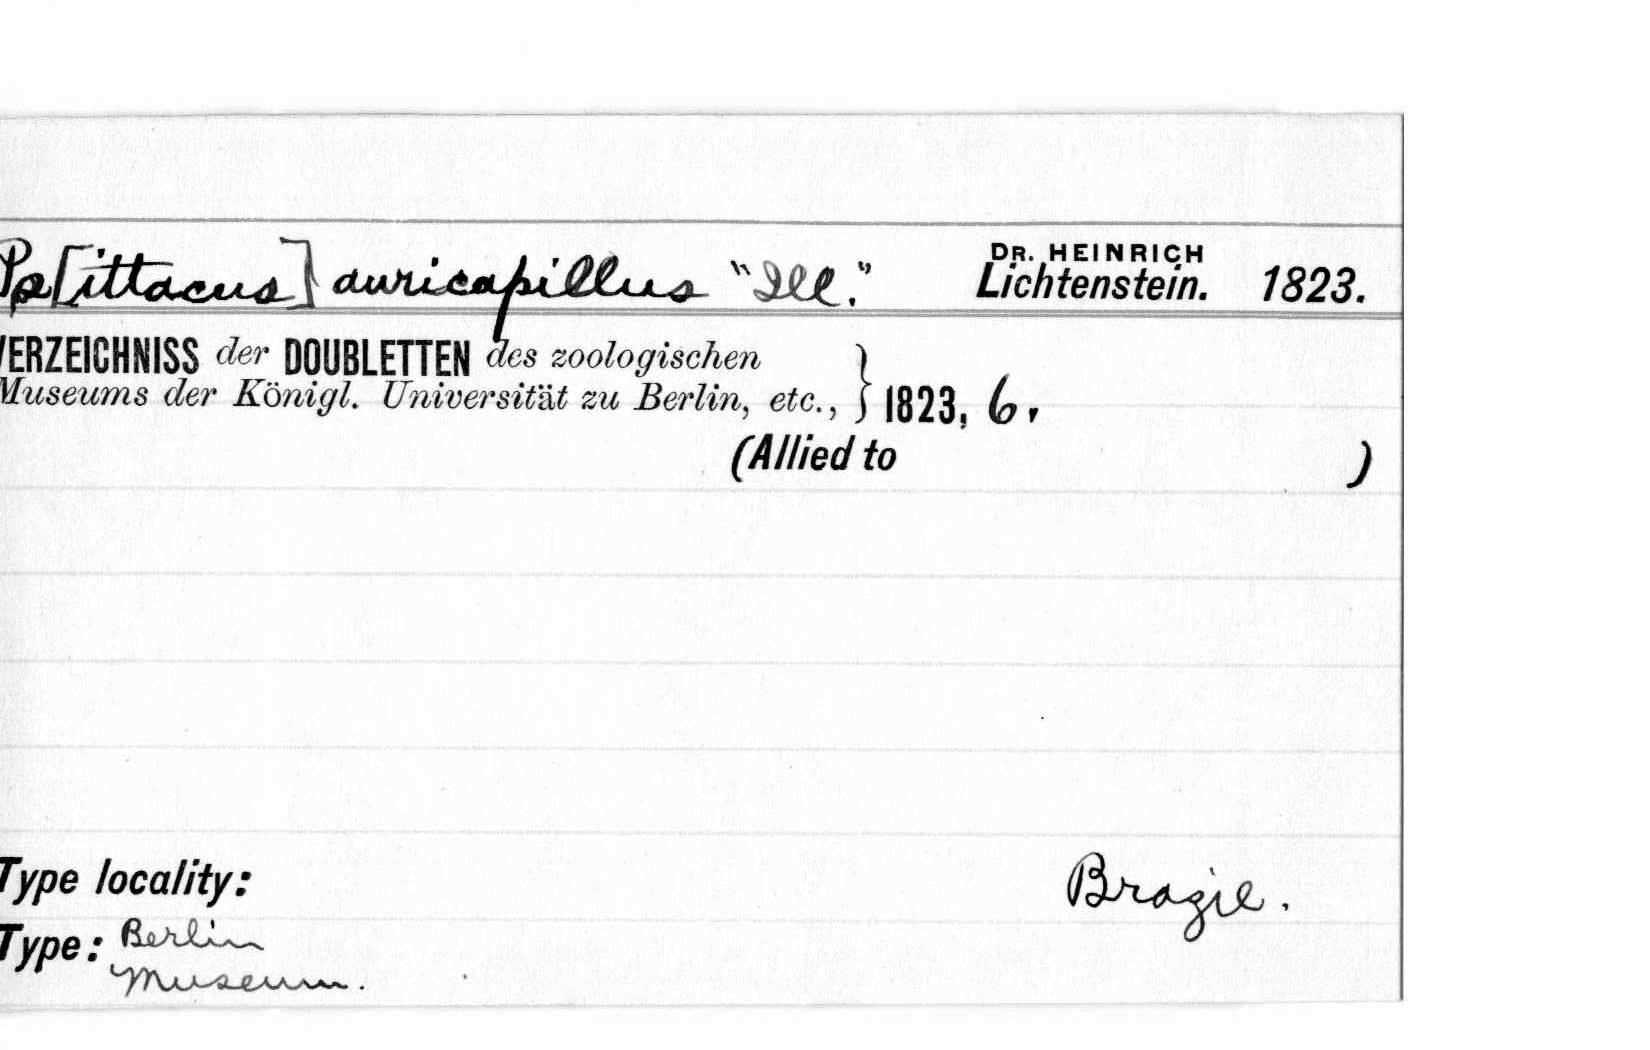 Ps[ittacus] auricapillus "Ill." DR. HEINRICH Lichtenstein. 1823.
VERZEICHNISS der DOUBLETTEN des zoologischen
Museums der Königl. Universität zu Berlin, etc., } 1823, 6.
(Allied to )
Type locality: Brazil.
Type: Berlin
Museum.